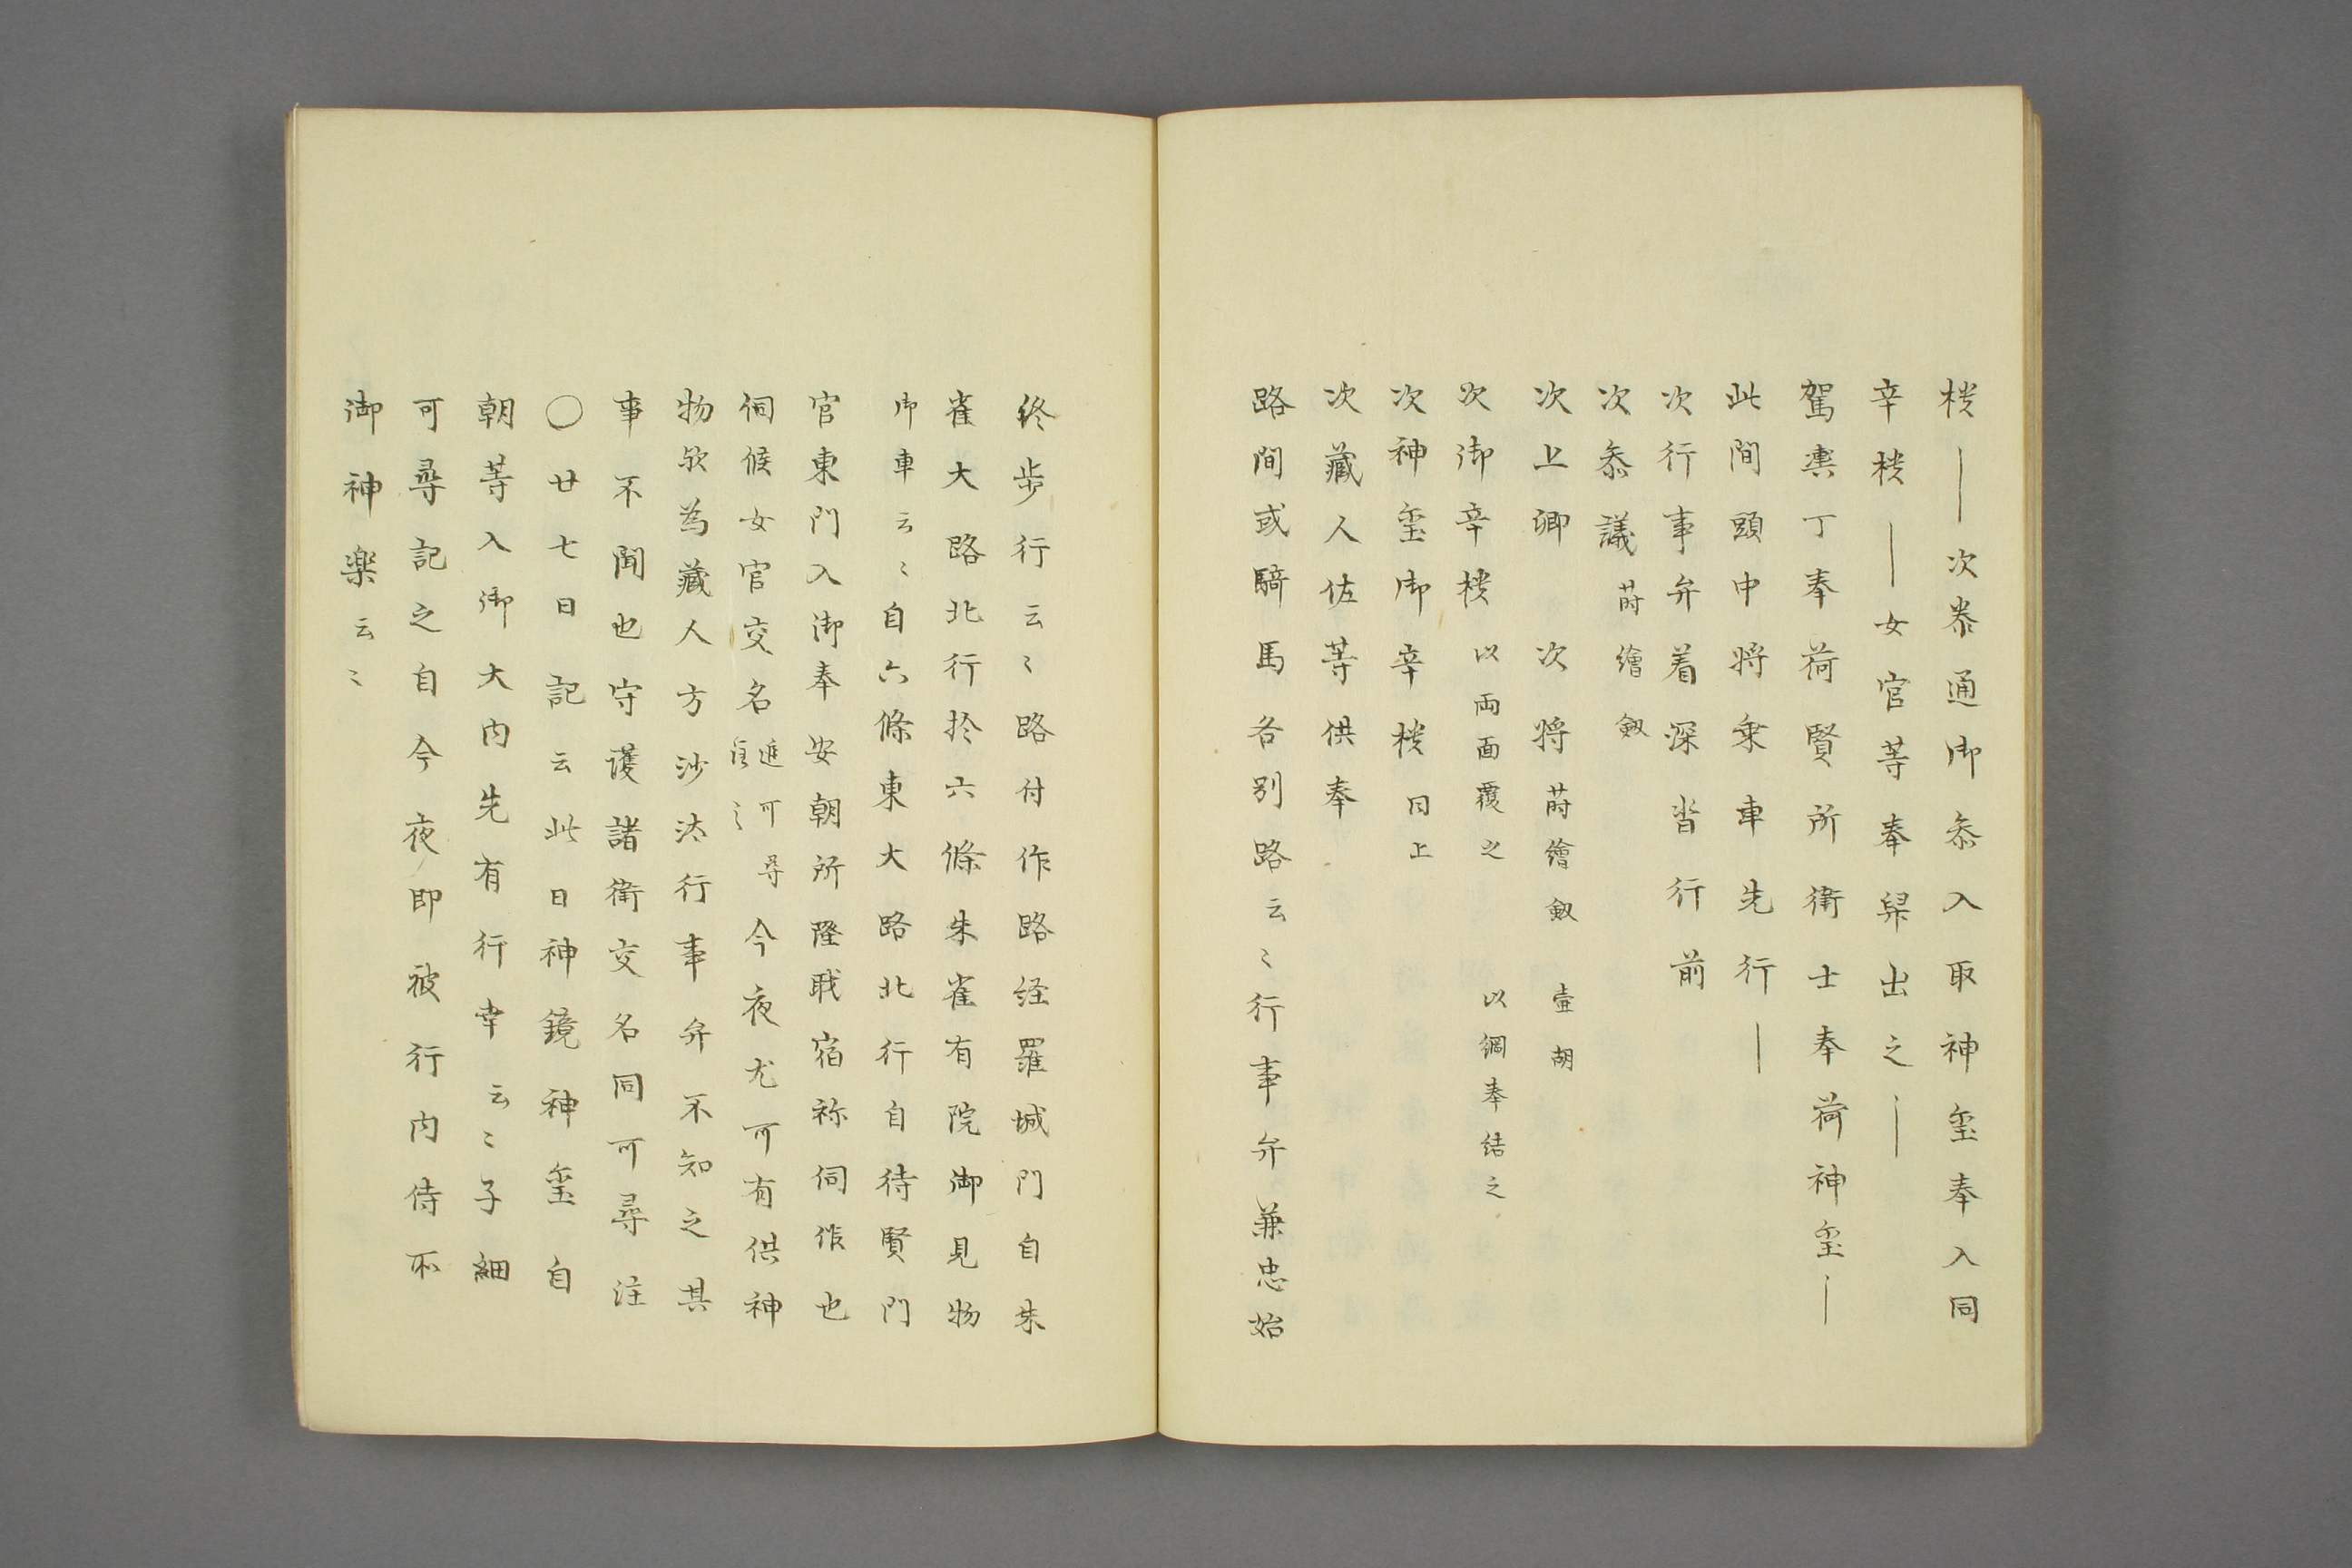 櫃｜次泰通卿参入取神璽奉入同
辛櫃｜女官等奉舁出之｜
駕輿丁奉荷賢所衛士奉荷神璽｜
此間頭中将乗車先行｜
次行事弁着深沓行前
次参議 蒔繪釼
次上卿 次将 蒔繪釼 壺胡
次御辛櫃 以両面覆之 以綱奉結之
次神璽御辛櫃 同上
次蔵人佐等供奉
路間或騎馬各別路云〻行事弁兼忠始
終歩行云〻路付作路経羅城門自朱
雀大路北行於六條朱雀有院御見物
御車云〻自六條東大路北行自待賢門
官東門入御奉安朝所隆職宿祢伺作也
伺候女官交名 追可尋 今夜尤可有供神
物歟為蔵人方沙汰行事弁不知之其
事不聞也守護諸衛交名同可尋注
〇廿七日記云此日神鏡神璽自
朝等入御大内先有行幸云〻子細
可尋記之自今夜即被行内侍所
御神楽云〻